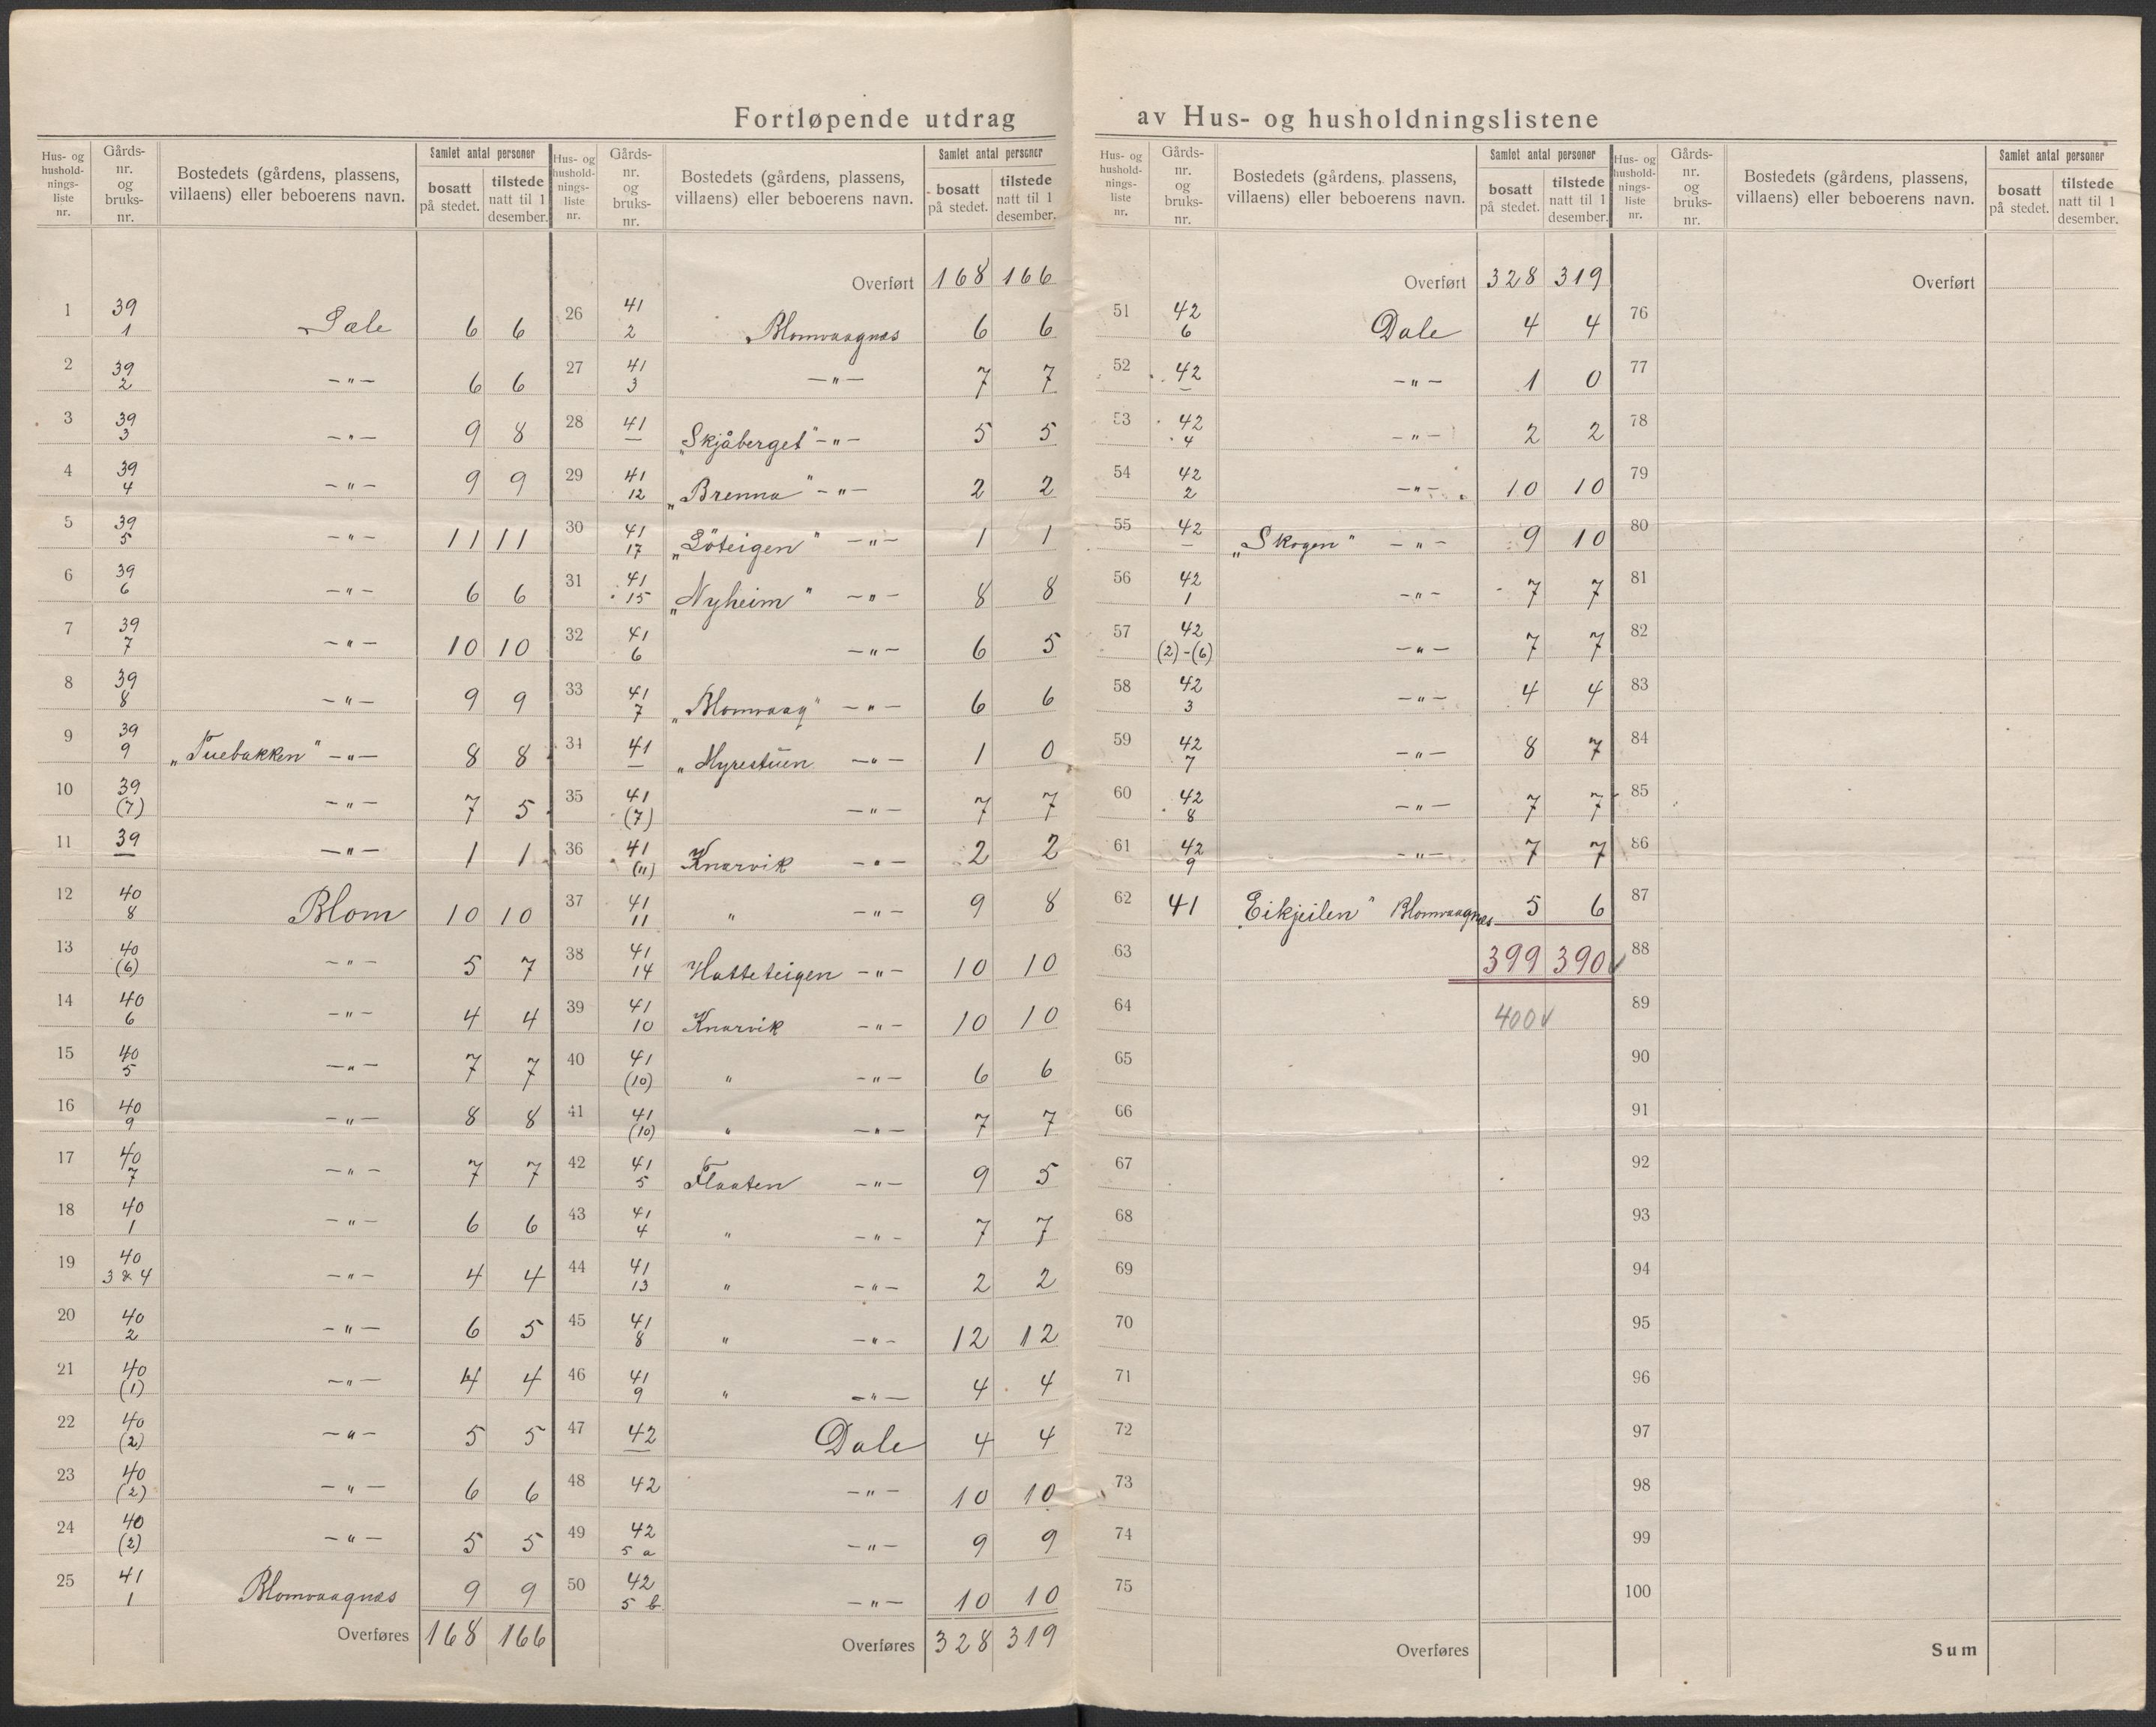 Fortløpende utdrag av Hus- og husholdningslistene
Hus- og husholdnings- liste nr. | Gårds- nr. og bruks- nr. | Bostedets (gårdens, plassens, villaens) eller beboerens navn. | Samlet antal personer bosatt på stedet. | tilstede natt til 1 desember.
1 | 39 1 | Sæle | 6 | 6
2 | 39 2 | —"— | 6 | 6
3 | 39 3 | —"— | 9 | 8
4 | 39 4 | —"— | 9 | 9
5 | 39 5 | —"— | 11 | 11
6 | 39 6 | —"— | 6 | 6
7 | 39 7 | —"— | 10 | 10
8 | 39 8 | —"— | 9 | 9
9 | 39 9 | „Tuebakken" —"— | 8 | 8
10 | 39 (7) | —"— | 7 | 5
11 | 39 — | —"— | 1 | 1
12 | 40 8 | Blom | 10 | 10
13 | 40 (6) | —"— | 5 | 7
14 | 40 6 | —"— | 4 | 4
15 | 40 5 | —"— | 7 | 7
16 | 40 9 | —"— | 8 | 8
17 | 40 7 | —"— | 7 | 7
18 | 40 1 | —"— | 6 | 6
19 | 40 3 & 4 | —"— | 4 | 4
20 | 40 2 | —"— | 6 | 5
21 | 40 (1) | —"— | 4 | 4
22 | 40 (2) | —"— | 5 | 5
23 | 40 (2) | —"— | 6 | 6
24 | 40 (2) | —"— | 5 | 5
25 | 41 1 | Blomvaagnæs | 9 | 9
Overføres | 168 | 166
Hus- og husholdnings- liste nr. | Gårds- nr. og bruks- nr. | Bostedets (gårdens, plassens, villaens) eller beboerens navn. | Samlet antal personer bosatt på stedet. | tilstede natt til 1 desember.
Overført | 168 | 166
26 | 41 2 | Blomvaagnæs | 6 | 6
27 | 41 3 | —"— | 7 | 7
28 | 41 — | „Skjåberget" —"— | 5 | 5
29 | 41 12 | „Brenna" —"— | 2 | 2
30 | 41 17 | „Löteigen" —"— | 1 | 1
31 | 41 15 | „Nyheim" —"— | 8 | 8
32 | 41 6 | —"— | 6 | 5
33 | 41 7 | „Blomvaag" —"— | 6 | 6
34 | 41 — | „Myrestuen —"— | 1 | 0
35 | 41 (7) | —"— | 7 | 7
36 | 41 (11) | Knarvik —"— | 2 | 2
37 | 41 11 | " —"— | 9 | 8
38 | 41 14 | Hatteteigen —"— | 10 | 10
39 | 41 10 | Knarvik —"— | 10 | 10
40 | 41 (10) | " —"— | 6 | 6
41 | 41 (10) | " —"— | 7 | 7
42 | 41 5 | Flaaten —"— | 9 | 5
43 | 41 4 | " —"— | 7 | 7
44 | 41 13 | " —"— | 2 | 2
45 | 41 8 | " —"— | 12 | 12
46 | 41 9 | " —"— | 4 | 4
47 | 42 — | Dale | 4 | 4
48 | 42 | —"— | 10 | 10
49 | 42 5 a | —"— | 9 | 9
50 | 42 5 b | —"— | 10 | 10
Overføres | 328 | 319
Hus- og husholdnings- liste nr. | Gårds- nr. og bruks- nr. | Bostedets (gårdens, plassens, villaens) eller beboerens navn. | Samlet antal personer bosatt på stedet. | tilstede natt til 1 desember.
Overført | 328 | 319
51 | 42 6 | Dale | 4 | 4
52 | 42 — | —"— | 1 | 0
53 | 42 4 | —"— | 2 | 2
54 | 42 2 | —"— | 10 | 10
55 | 42 — | „Skogen" —"— | 9 | 10
56 | 42 1 | —"— | 7 | 7
57 | 42 (2)-(6) | —"— | 7 | 7
58 | 42 3 | —"— | 4 | 4
59 | 42 7 | —"— | 8 | 7
60 | 42 8 | —"— | 7 | 7
61 | 42 9 | —"— | 7 | 7
62 | 41 | „Eikjeilen" Blomvaagnæs | 5 | 6
63 | 399 | 390 ✓
64 | 400 ✓
65
66
67
68
69
70
71
72
73
74
75
Overføres
Hus- og husholdnings- liste nr. | Gårds- nr. og bruks- nr. | Bostedets (gårdens, plassens, villaens) eller beboerens navn. | Samlet antal personer bosatt på stedet. | tilstede natt til 1 desember.
Overført
76
77
78
79
80
81
82
83
84
85
86
87
88
89
90
91
92
93
94
95
96
97
98
99
100
Sum